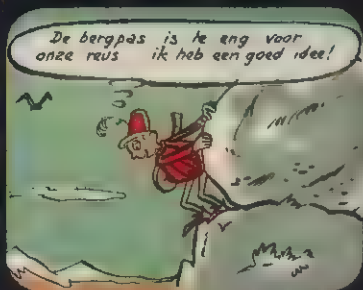 De bergpas is te eng voor
onze reus ik heb een goed idee!